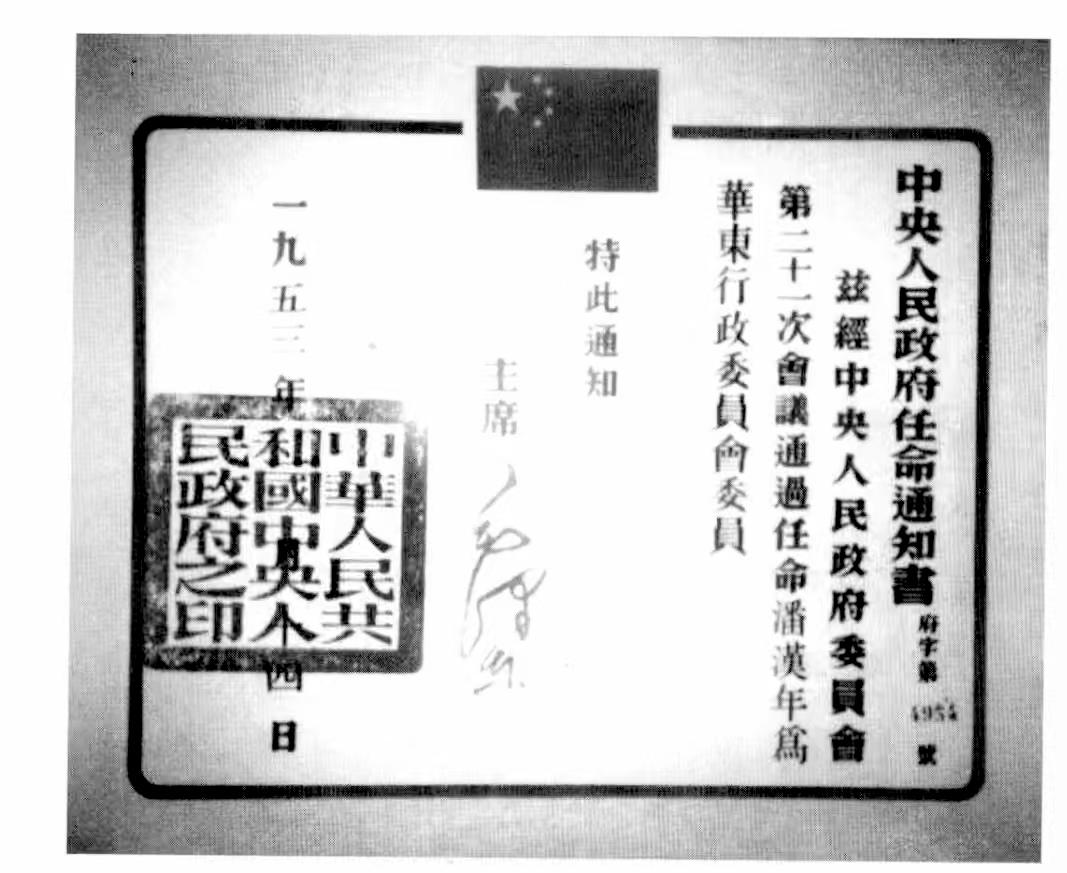 中央人民政府任命通知書 府字第 4954 號
茲經中央人民政府委員會
第二十一次會議通過任命潘漢年爲
華東行政委員會委員
特此通知
主席 毛澤東
一九五三年 月十四日
中華人民共
和國中央人
民政府之印